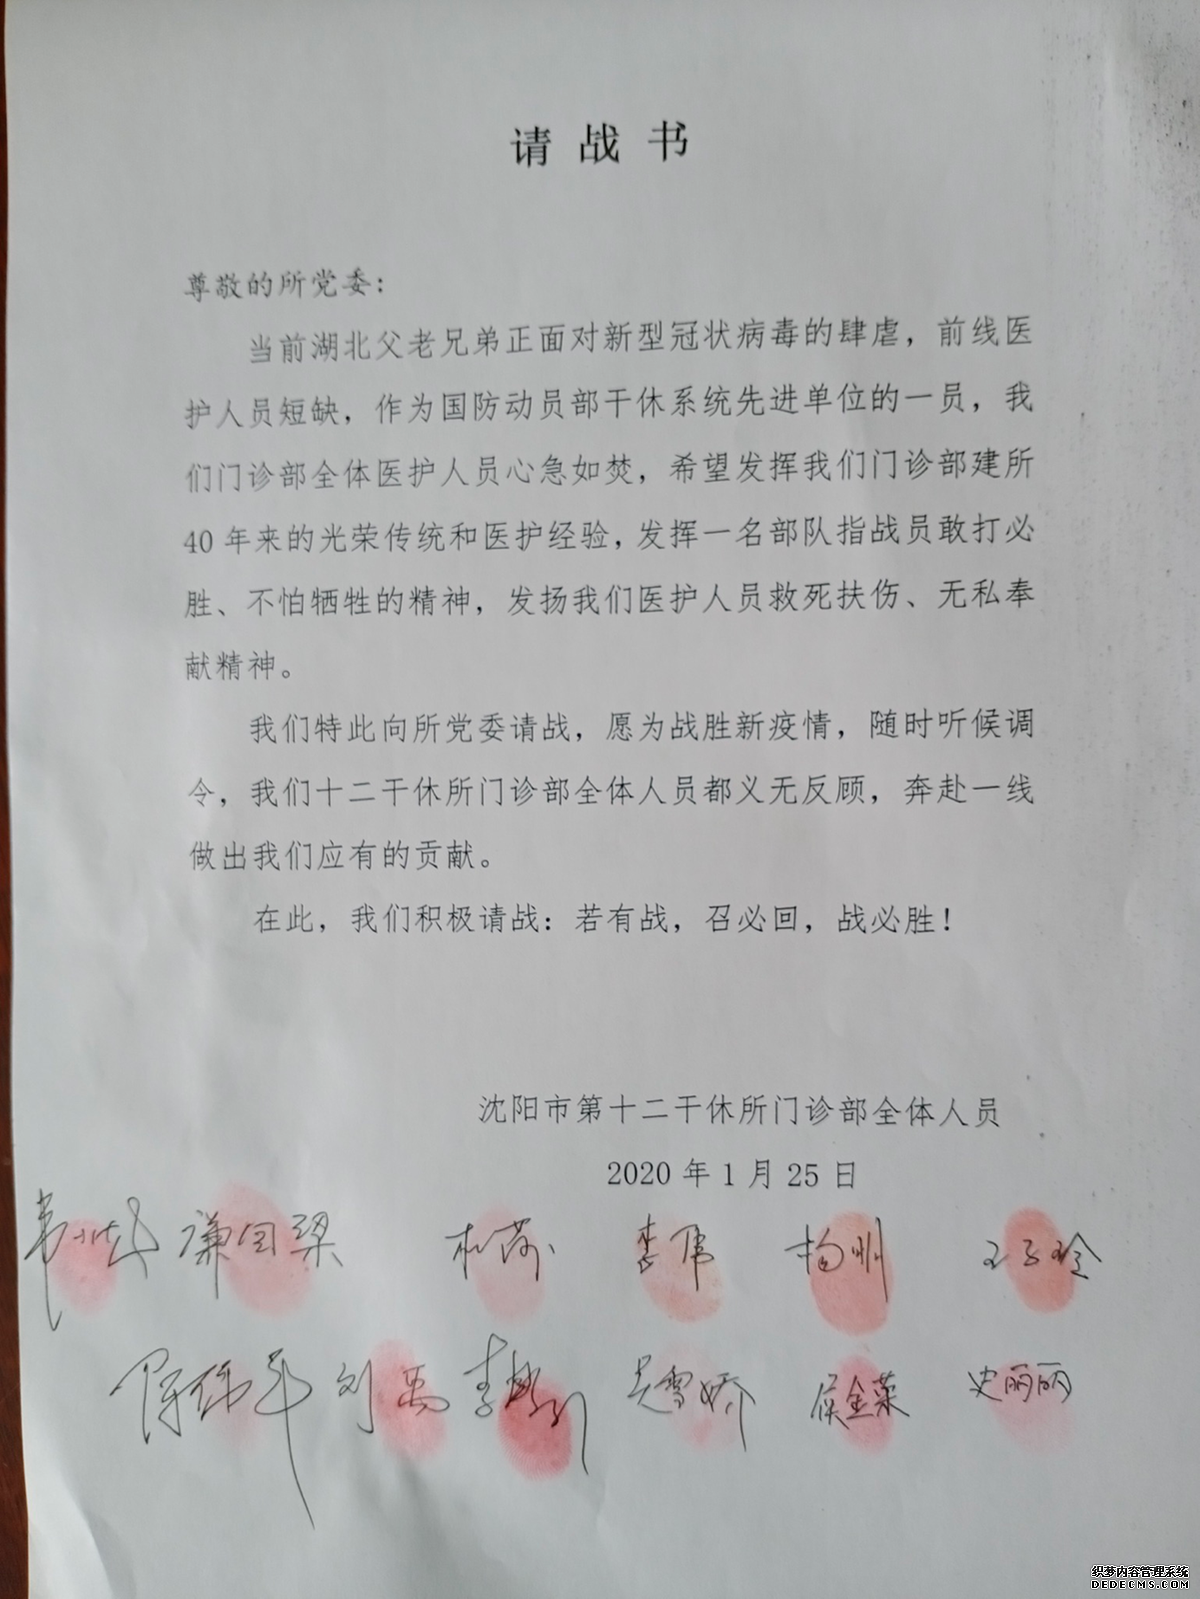 请战书
尊敬的所党委：
当前湖北父老兄弟正面对新型冠状病毒的肆虐，前线医
护人员短缺，作为国防动员部干休系统先进单位的一员，我
们门诊部全体医护人员心急如焚，希望发挥我们门诊部建所
40年来的光荣传统和医护经验，发挥一名部队指战员敢打必
胜、不怕牺牲的精神，发扬我们医护人员救死扶伤、无私奉
献精神。
我们特此向所党委请战，愿为战胜新疫情，随时听候调
令，我们十二干休所门诊部全体人员都义无反顾，奔赴一线
做出我们应有的贡献。
在此，我们积极请战：若有战，召必回，战必胜！
沈阳市第十二干休所门诊部全体人员
2020年1月25日
李伟 杨洲 王子玲
刘禹 吴雪娇 侯金荣 史丽丽
织梦内容管理系统
DEDECMS.COM